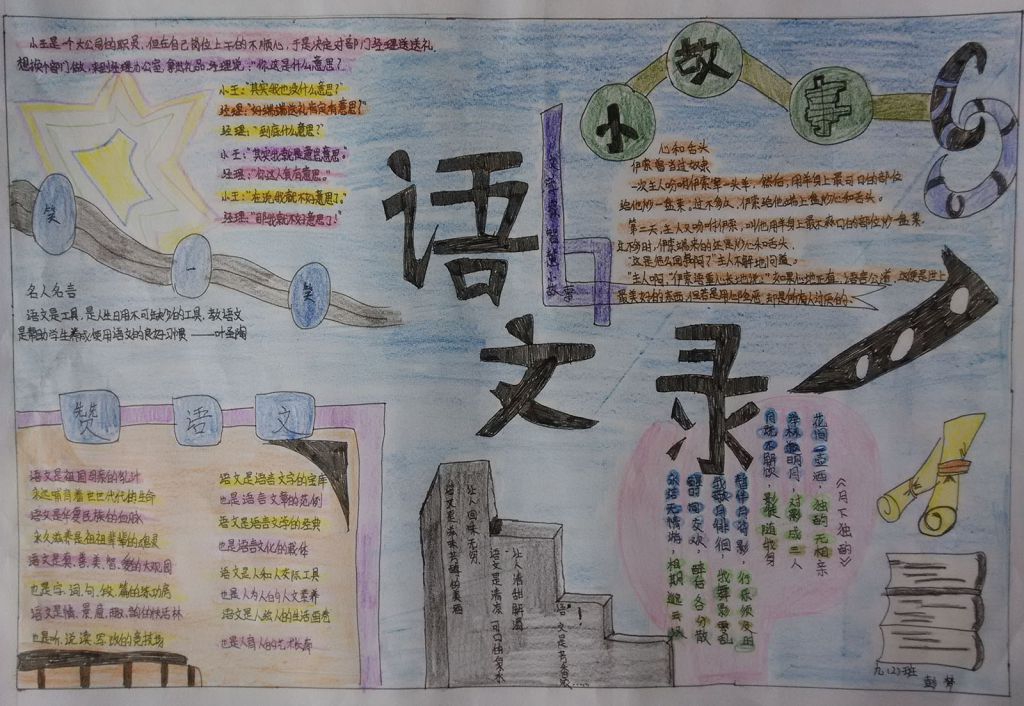 小王是一个大公司的职员，但在自己岗位上干的不顺心，于是决定对部门经理送送礼，
想换个部门做，来到经理办公室，拿出礼品，经理说：“你这是什么意思？”
小王：“其实我也没什么意思？”
经理：“好端端送礼肯定有意思？”
经理：“到底什么意思？”
小王：“其实我就是意思意思。”
经理：“你这人真有意思。”
小王：“在说，我就不好意思了。”
经理：“那我就不好意思了！”
笑
一
笑
名人名言
语文是工具，是人生日用不可缺少的工具，教语文
是帮助学生养成使用语文的良好习惯 ——叶圣陶
语
文
录
小
故
事
心和舌头
伊索曾当过奴隶
一次主人吩咐伊索宰一头羊，然后，用羊身上最可口的部位
给他炒一盘菜。过不多久，伊索给他端上盘炒心和舌头。
第二天，主人又吩咐伊索，叫他用羊身上最不可口的部位炒一盘菜
过不多时，伊索端来的还是炒心和舌头。
“这是怎么回事啊？”主人不解地问道。
故事
赞
语
文
语文是祖国母亲的乳汁
永远哺育着世世代代的生命
语文是华夏民族的血脉
永久滋养是祖祖辈辈的魂灵
语文是真、善、美、智、爱的大观园
也是字、词、句、段、篇的练功房
语文是情、景、意、趣、韵的快活林
也是听、说、读、写、改的竞技场
语文是语言文字的宝库
也是语言文章的范例
语文是语言文学的经典
也是语言文化的载体
语文是人和人交际工具
也是人为人的人文素养
语文是人绘人的生活画卷
也是人育人的艺术长廊
让人回味无穷
让人清甜解渴
语文是清凉可口的泉水
《月下独酌》
花间一壶酒，独酌无相亲
举杯邀明月，对影成三人
月既不解饮，影徒随我身
暂伴月将影，行乐须及时
我歌月徘徊，我舞影零乱
醒时同交欢，醉后各分散
永结无情游，相期邈云汉
九(2)班
彭梦